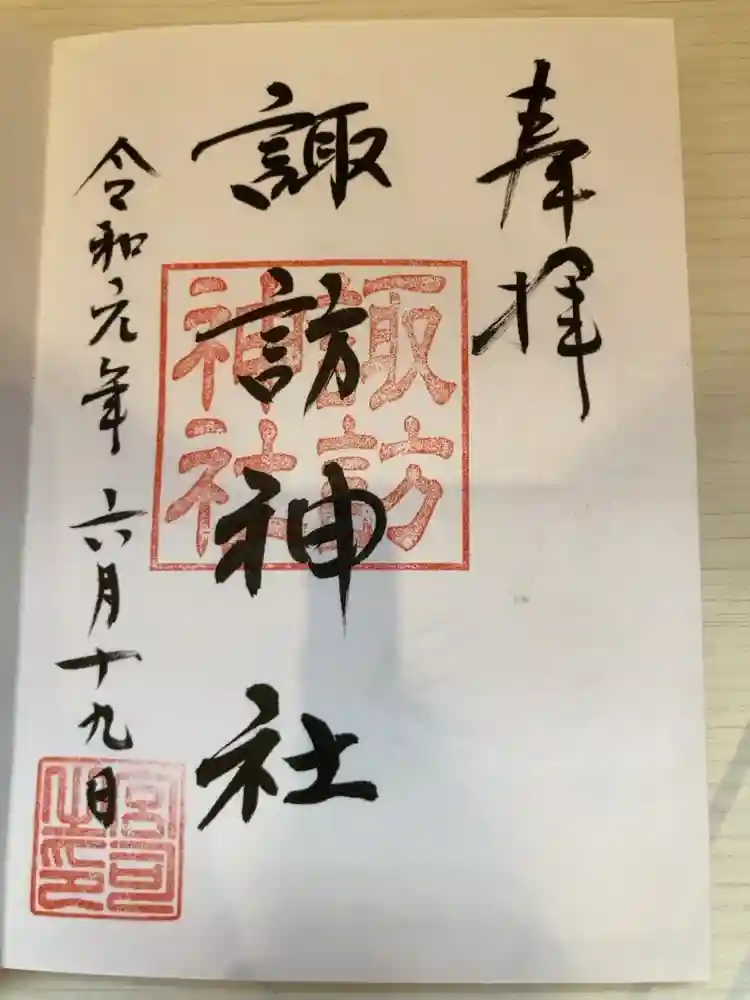 奉拝
諏訪神社
諏訪
神社
令和元年六月十九日
宮司
之印